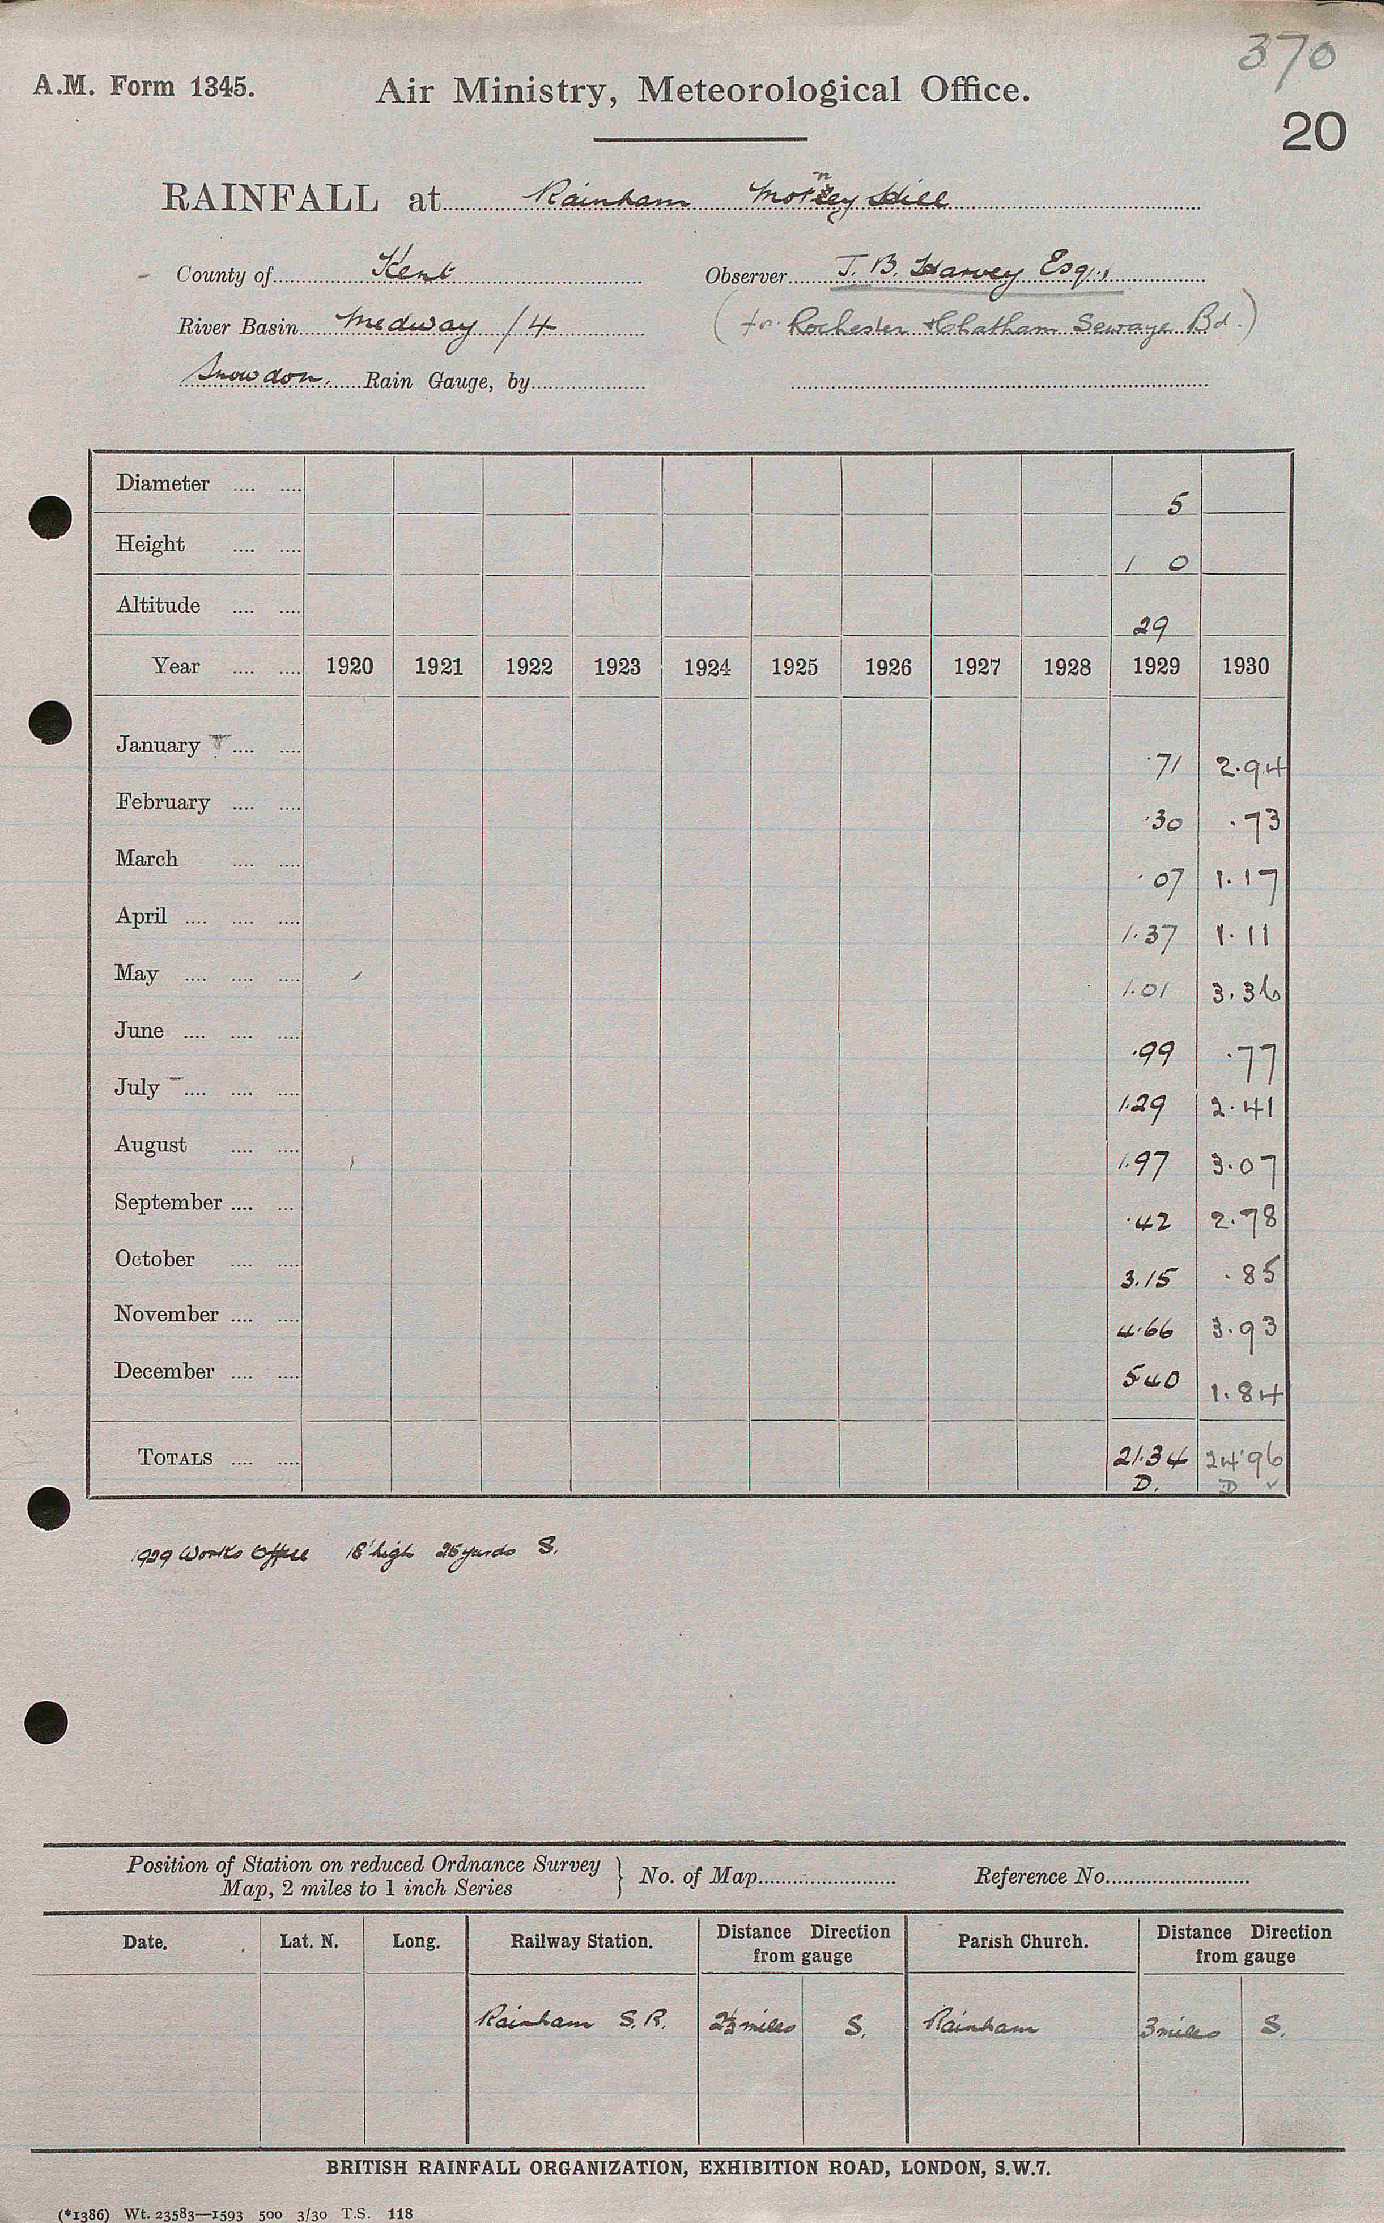 370
A.M. Form 1345. Air Ministry, Meteorological Office.
20
RAINFALL at Rainham Motney Hill
County of Kent Observer J. B. Harvey Esq.
River Basin Medway /4 (for Rochester & Chatham Sewage Bd.)
Snowdon. Rain Gauge, by
Diameter .... .... 5
Height .... .... 1 0
Altitude .... .... 29
Year .... .... 1920 1921 1922 1923 1924 1925 1926 1927 1928 1929 1930
January .... .... ·71 2.94
February .... .... ·30 .73
March .... .... ·07 1.17
April .... .... .... 1.37 1.11
May .... .... .... 1.01 3.36
June .... .... .... .99 .77
July .... .... .... 1.29 2.41
August .... .... 1.97 3.07
September .... .... ·42 2.78
October .... .... 3.15 .85
November .... .... 4.66 3.93
December .... .... 5 40 1.84
TOTALS .... .... 21.34 24.96
D. D ✓
1929 Works Office 18' high 25 yards S.
Position of Station on reduced Ordnance Survey
Map, 2 miles to 1 inch Series } No. of Map Reference No.
Date. Lat. N. Long. Railway Station. Distance Direction from gauge Parish Church. Distance Direction from gauge
Rainham S.R. 2½ miles S. Rainham 3 miles S.
BRITISH RAINFALL ORGANIZATION, EXHIBITION ROAD, LONDON, S.W.7.
(*1386) Wt. 23583—1593 500 3/30 T.S. 118